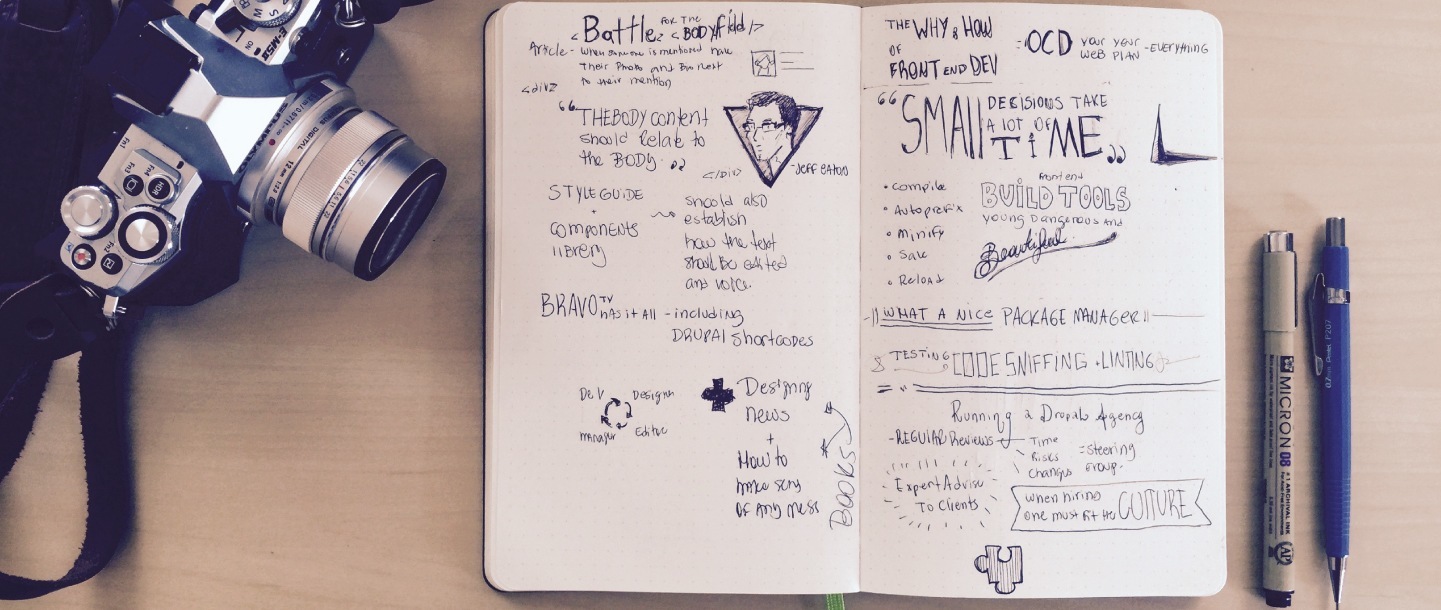 Battle FOR THE <BODYfield/>
Article - When someone is mentioned have
their Photo and Bio next
to their mention
<div>
"THE BODY content
should Relate to
the BODY."
</div>
- JEFF EATON
STYLE GUIDE
+
COMPONENTS
library
should also
establish
how the text
should be edited
and voice.
BRAVO TV hAs it All - including
DRUPAl Shortcodes
Dev
Designer
Editor
manager
Designing
news
+
How to
make sense
OF Any Mess
BOOKS
THE WHY & HOW
OF
FRONT END DEV
= OCD your your
WEB PLAN - EVERYTHING
"SMAll DECISIONS TAKE
A lOT OF TiME"
• Compile
• Autoprefix
• Minify
• Save
• Reload
front end
BUILD TOOLS
young Dangerous And
Beautiful
"WHAT A NICE PACKAGE MANAGER"
& TESTING CODE SNIFFING + LINTING
Running a Drupal Agency
- REGULAR Reviews
Time
Risks
Changes
= Steering
Group.
Expert Advise
To Clients
when hiring
one must fit the CULTURE
MICRON 08
#1 ARCHIVAL INK
AP
0.7mm Pentel P207
E-M5II
DIGITAL
Fn1
Fn2
Fn3
Fn4
HDR
ON